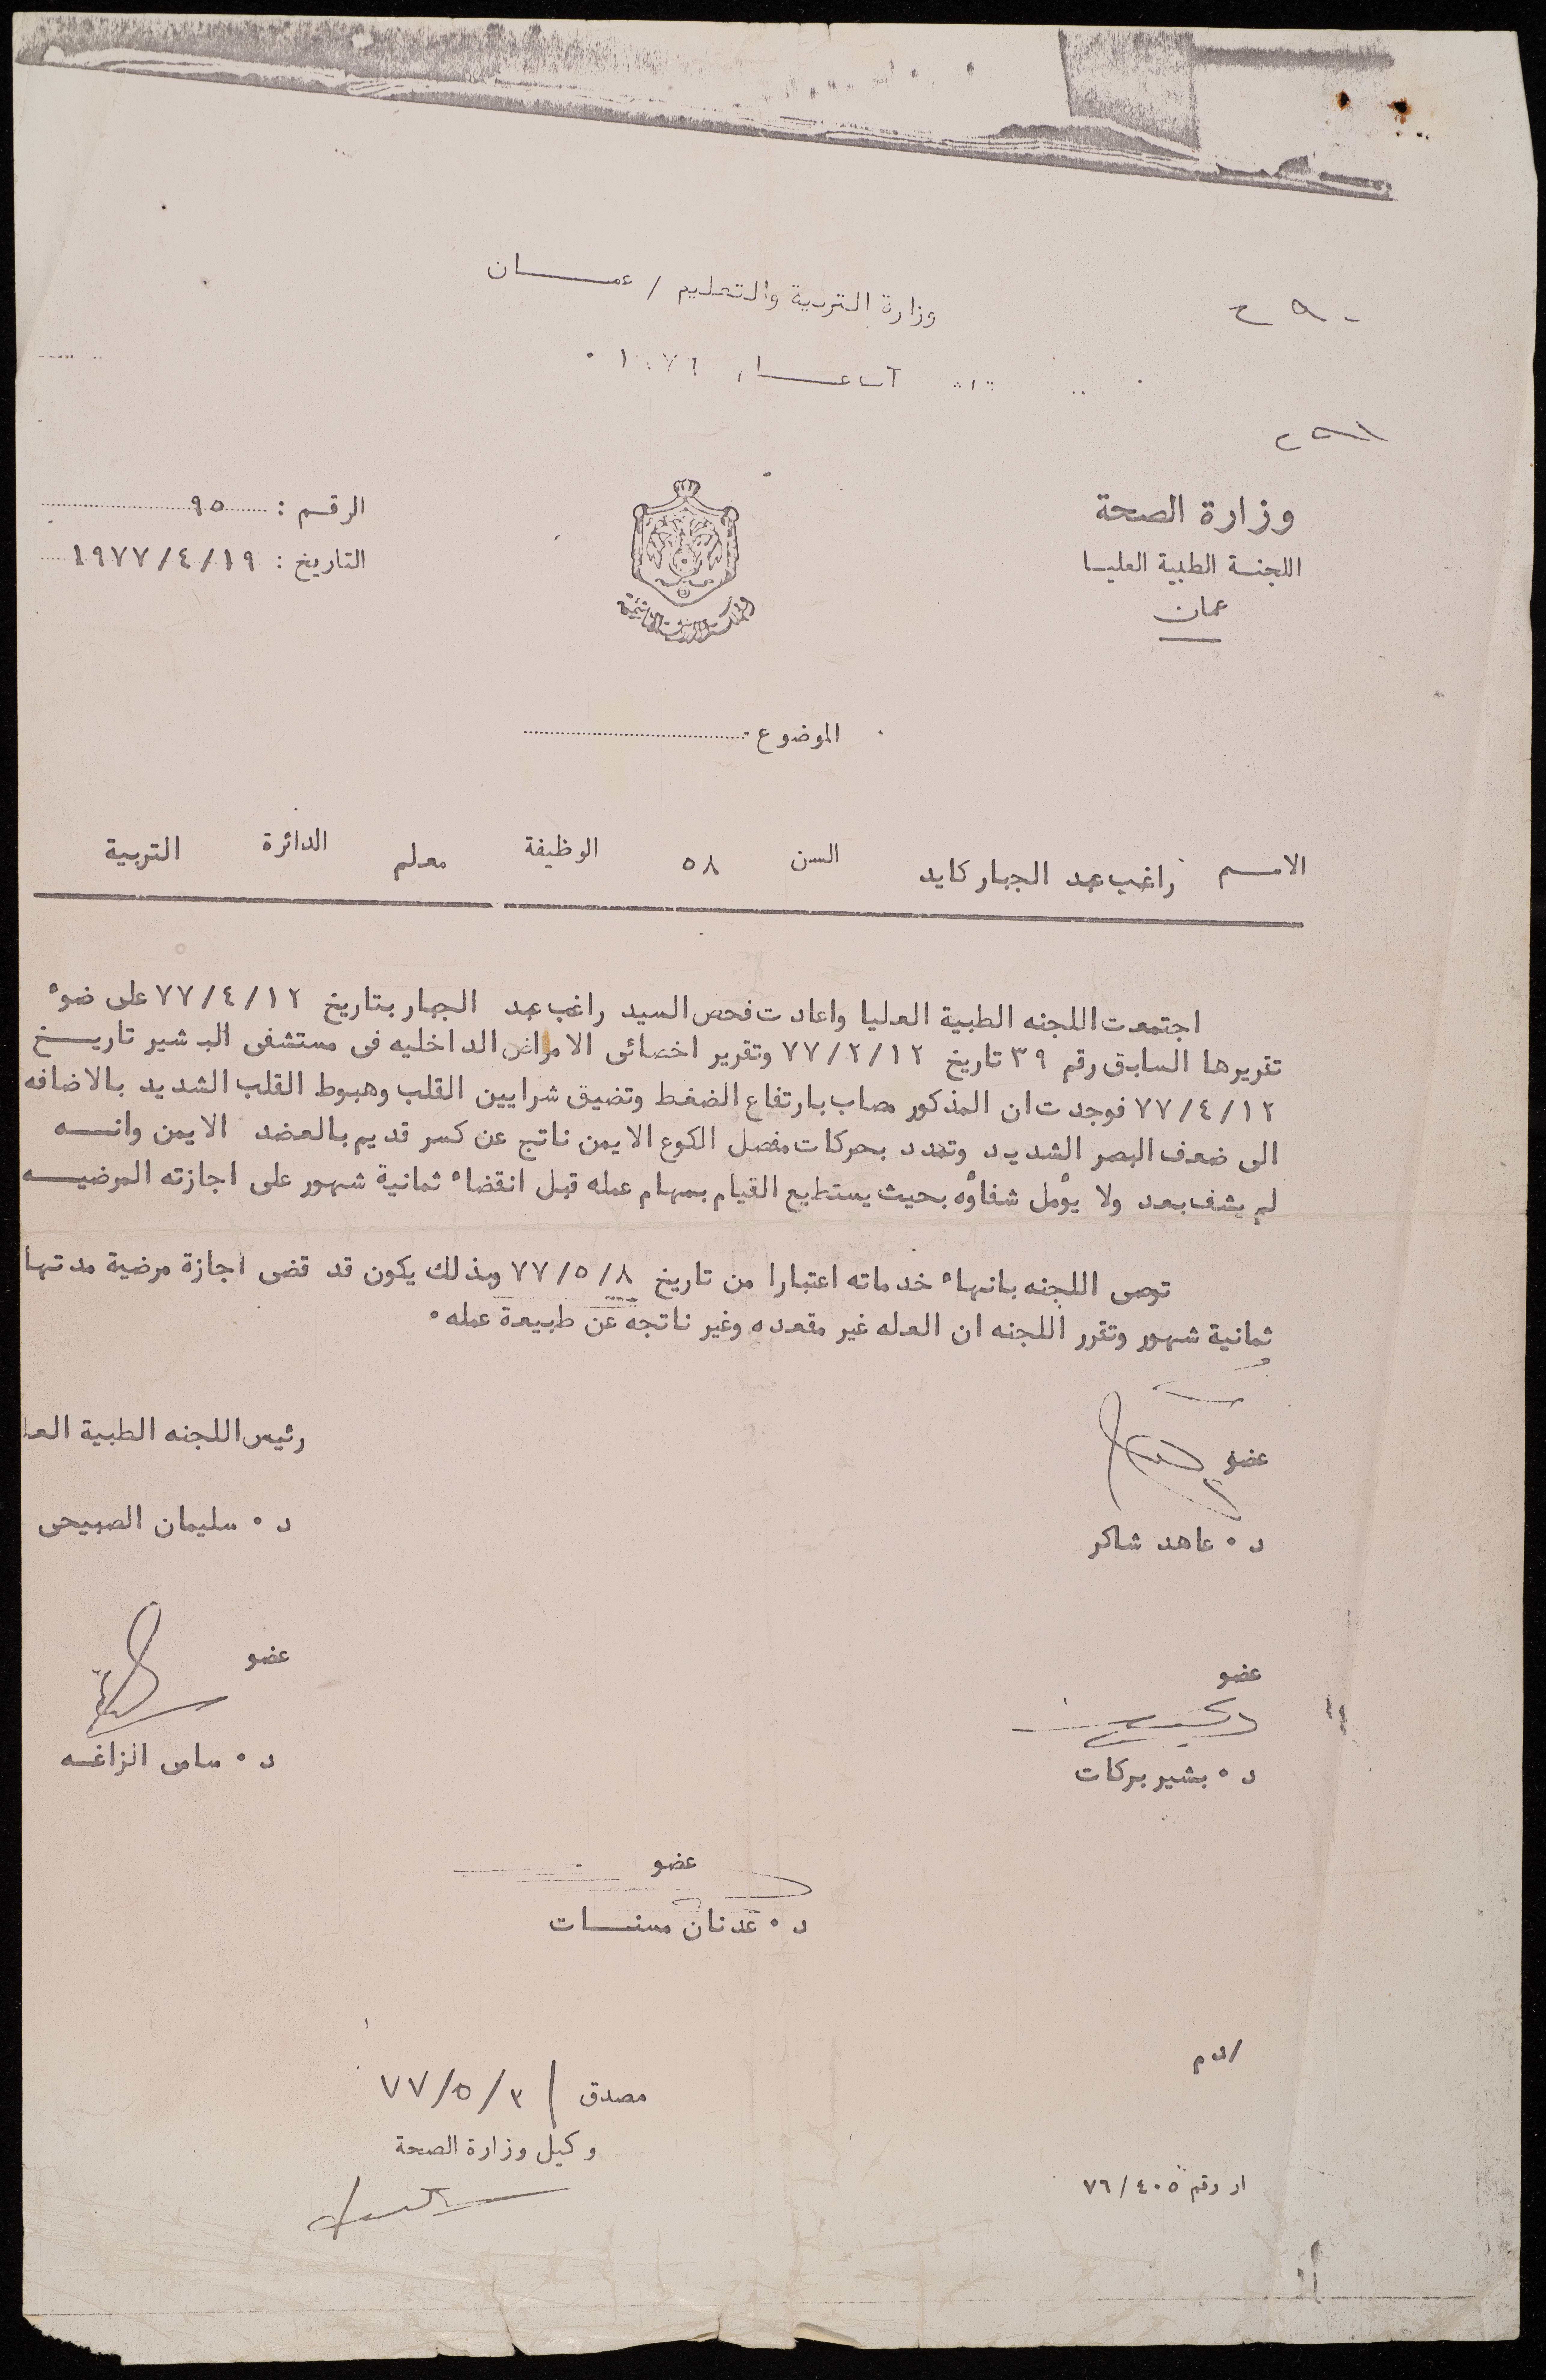 وزارة التربية والتعليم / عمـــــان
وزارة الصحة
اللجنـة الطبية العليـا
عمان
الرقـم : ٩٥
التاريخ : ١٩٧٧/٤/١٩
المملكة الأردنية الهاشمية
الموضوع
الاسـم راغب عبد الجبار كايد السن ٥٨ الوظيفة معلم الدائرة التربية
اجتمعت اللجنه الطبية العليا واعادت فحص السيد راغب عبد الجبار بتاريخ ٧٧/٤/١٢ على ضوء
تقريرها السابق رقم ٣٩ تاريخ ٧٧/٢/١٢ وتقرير اخصائى الامراض الداخليه فى مستشفى البشير تاريــخ
٧٧/٤/١٢ فوجدت ان المذكور مصاب بارتفاع الضغط وتضيق شرايين القلب وهبوط القلب الشديد بالاضافه
الى ضعف البصر الشديد وتحدد بحركات مفصل الكوع الايمن ناتج عن كسر قديم بالعضد الايمن وانـــه
لم يشف بعد ولا يؤمل شفاؤه بحيث يستطيع القيام بمهام عمله قبل انقضاء ثمانية شهور على اجازته المرضيـــه
توصى اللجنه بانهاء خدماته اعتبارا من تاريخ ٧٧/٥/٨ وبذلك يكون قد قضى اجازة مرضية مدتها
ثمانية شهور وتقرر اللجنه ان العله غير مقعده وغير ناتجه عن طبيعة عمله ٠
رئيس اللجنه الطبية العل
عضو
د ٠ سليمان الصبيحى
د ٠ عاهد شاكر
عضو
عضو
د ٠ بشير بركات
د ٠ سامى الزاغـه
عضو
د ٠ عدنان مسنــات
/ د م
مصدق / ٧٧/٥/٣
وكيل وزارة الصحة
ار رقم ٧٦/٤٠٥